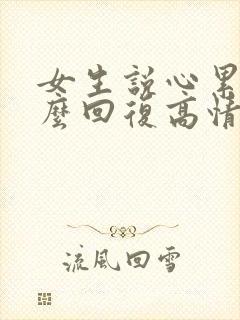 女生說心累
麼回復高情
流風回雪